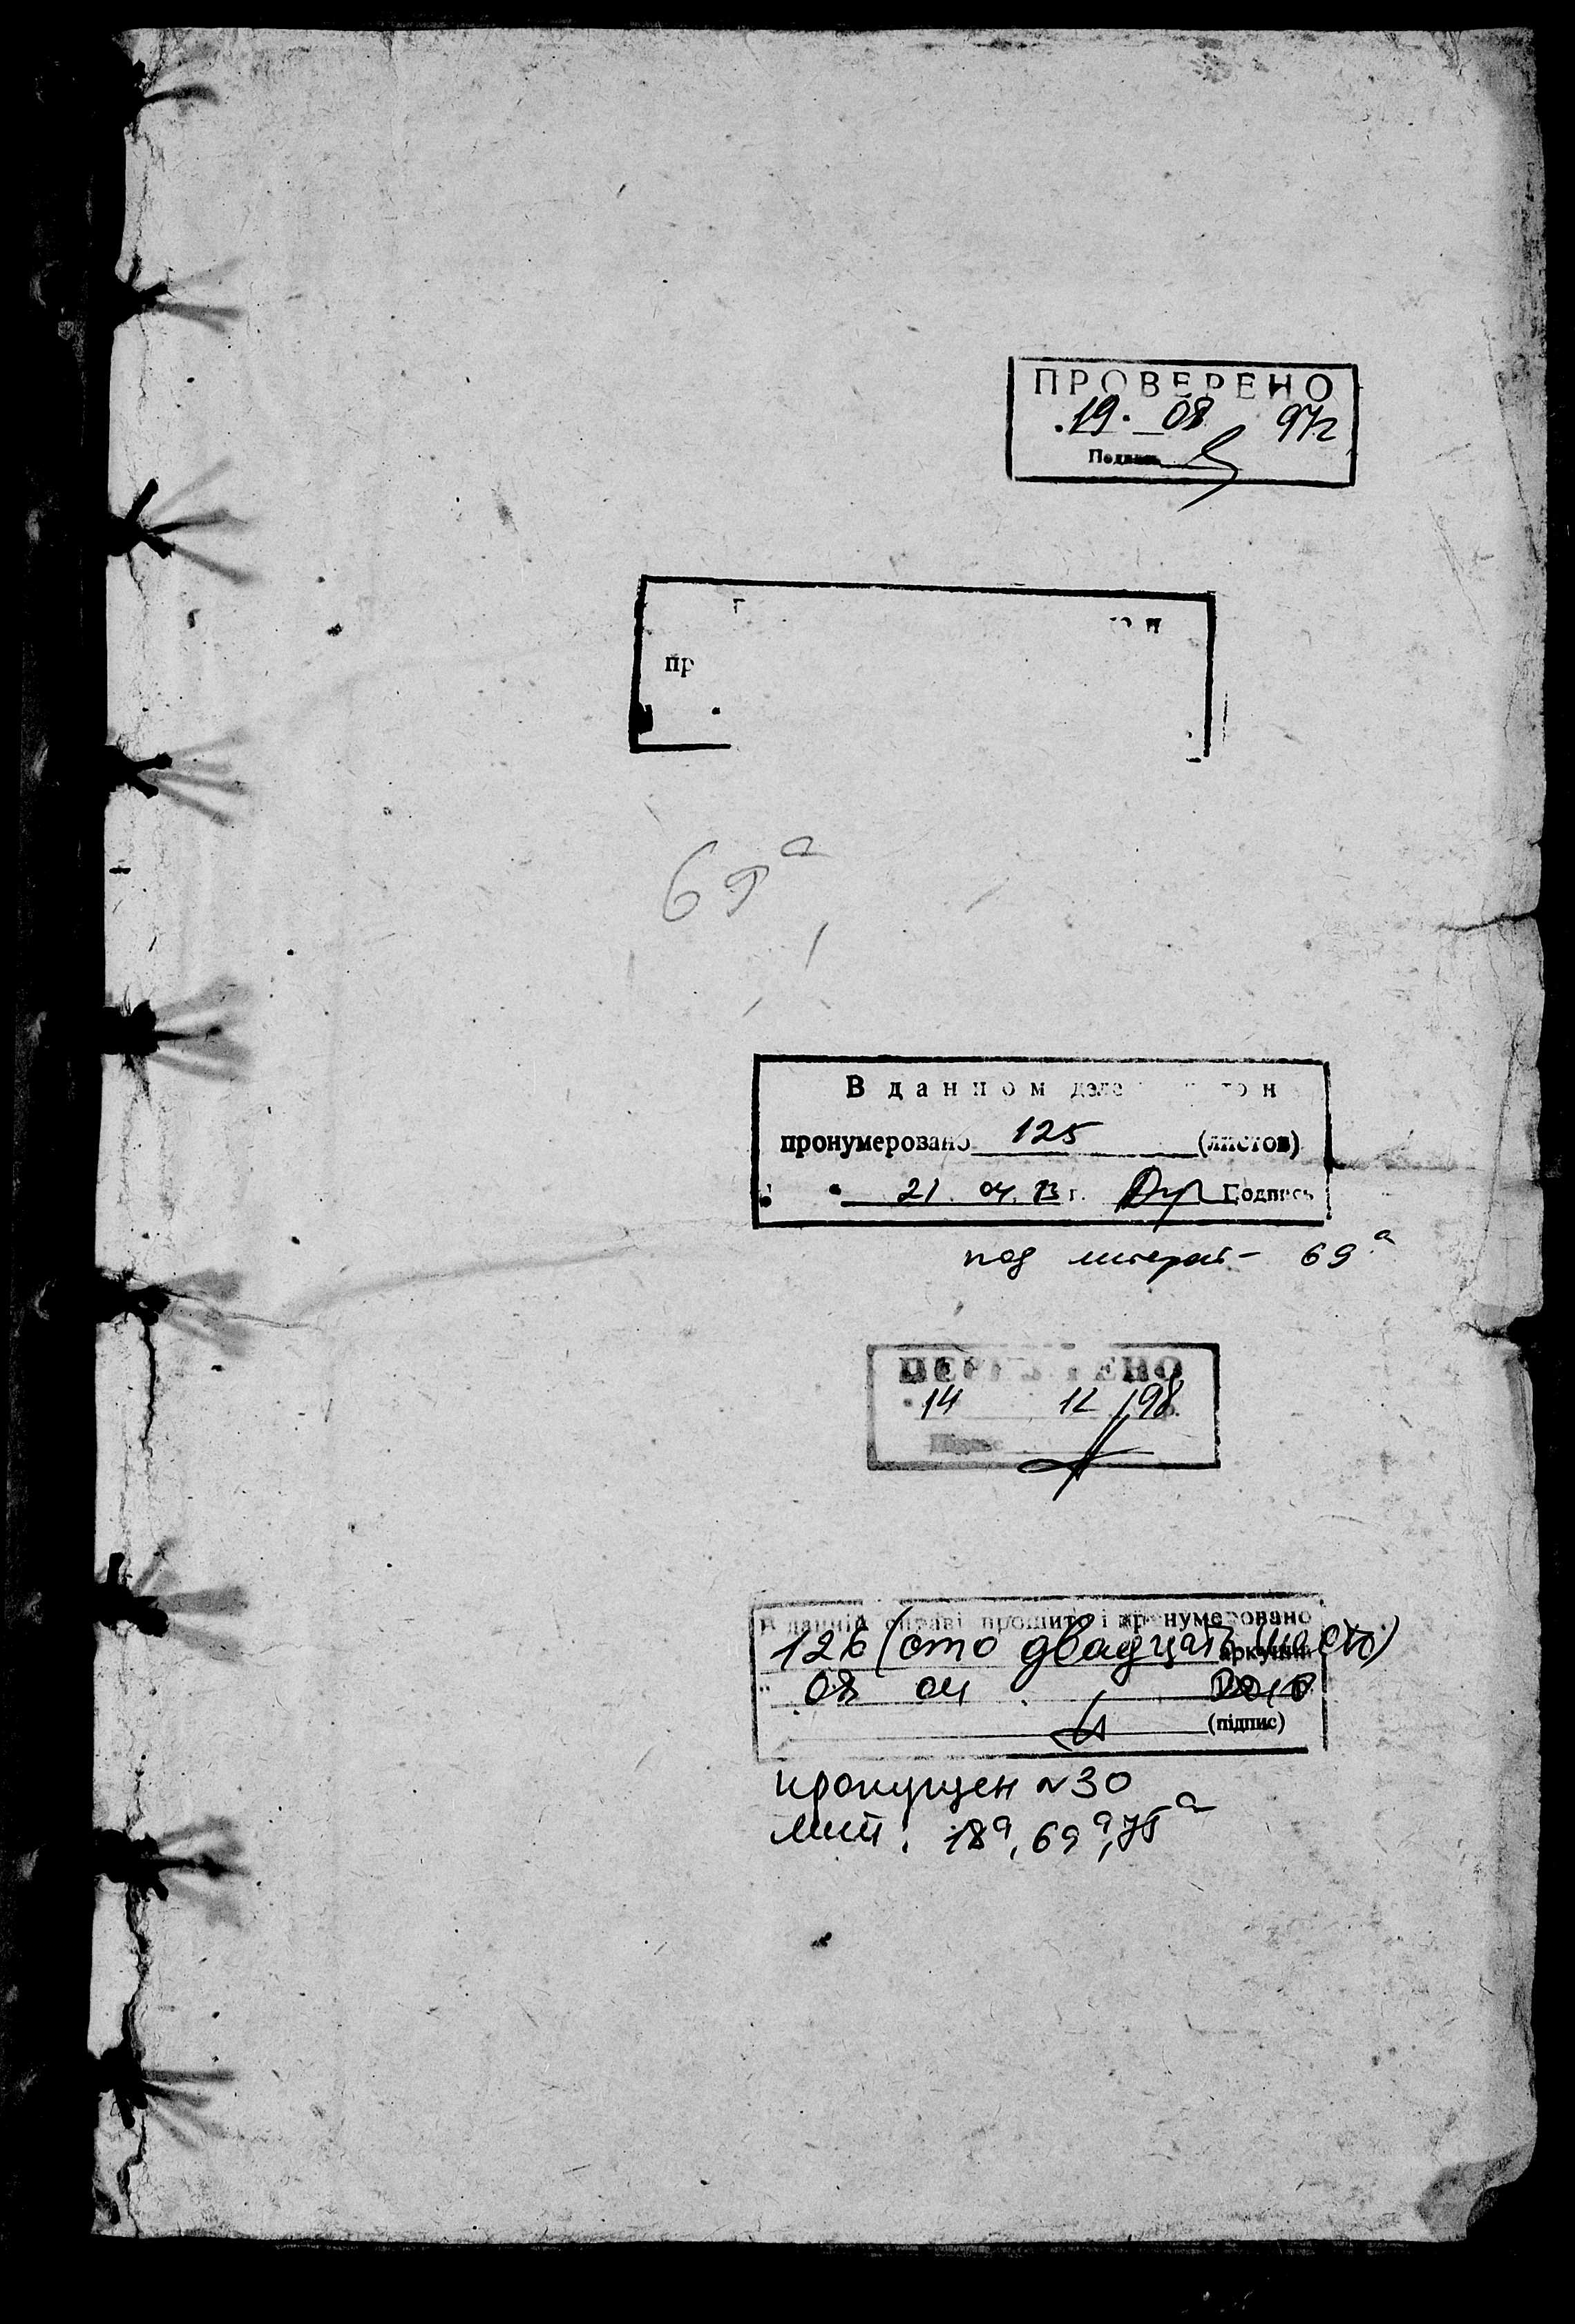 ПРОВЕРЕНО
19. 08 97г
Подпись
пр
69а
В данном деле
пронумеровано 125 (листов)
21. 04. г. Подпись
под литерой - 69а
ПЕРЕВІРЕНО
14 12 98
В данній справі прошито і пронумеровано
126 (сто двадцать шесть) аркушів
08 04
(підпис)
пропущен №30
лит: 18а, 69а, 75а